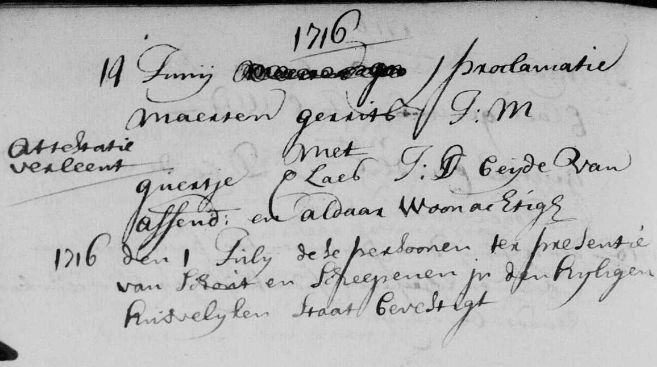 1716
19 Junij proclamatie
Maerten gerrits J: M
Attestatie
verleent
Met
guertje Claes J: D beijde van
assend: en aldaar woonachtigh
1716 den 1 Julij dese persoonen ter presentie
van Schout en Scheepenen in den hyligen
huwelyken staat bevestigt